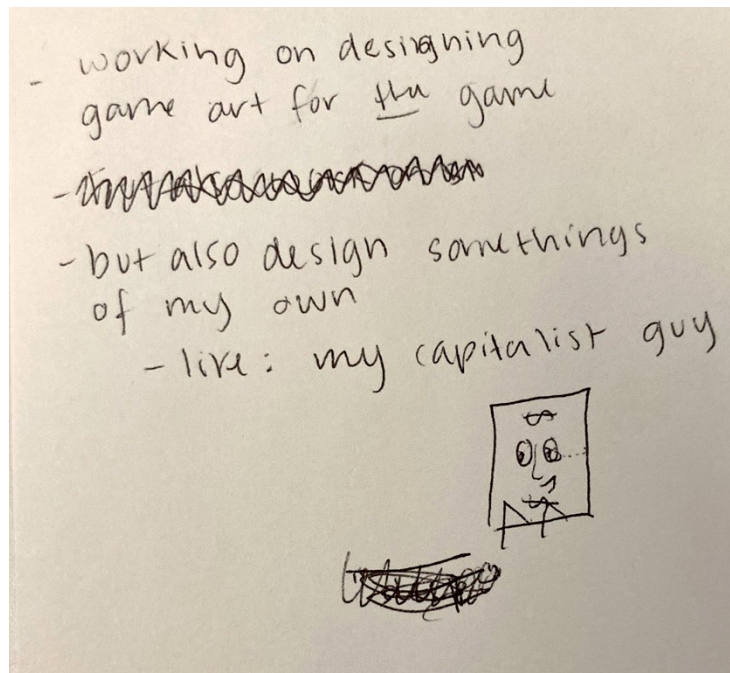 - working on designing
game art for the game
-
- but also design somethings
of my own
- like: my capitalist guy